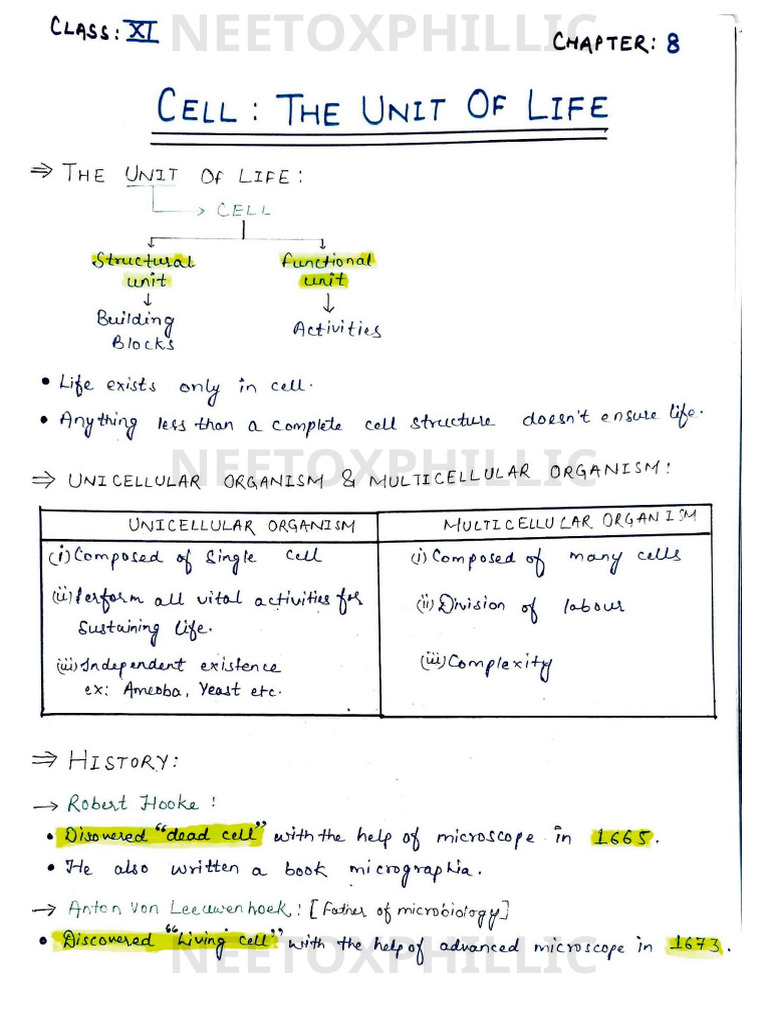 CLASS: XI
NEETOXPHILLIC
CHAPTER: 8
CELL : THE UNIT OF LIFE
⇒ THE UNIT OF LIFE :
→ CELL
Structural functional
unit unit
↓ ↓
Building Activities
Blocks
• Life exists only in cell.
• Anything less than a complete cell structure doesn't ensure life.
NEETOXPHILLIC
⇒ UNICELLULAR ORGANISM & MULTICELLULAR ORGANISM :
UNICELLULAR ORGANISM MULTICELLULAR ORGANISM
(i) Composed of Single cell (i) Composed of many cells
(ii) Perform all vital activities for (ii) Division of labour
Sustaining life.
(iii) Independent existence (iii) Complexity
ex: Ameoba, Yeast etc.
⇒ HISTORY :
→ Robert Hooke :
• Disovered "dead cell" with the help of microscope in 1665.
• He also written a book micrographia.
→ Anton Von Leeuwenhoek : [Father of microbiology]
• Discovered "Living cell" with the help of advanced microscope in 1673.
NEETOXPHILLIC